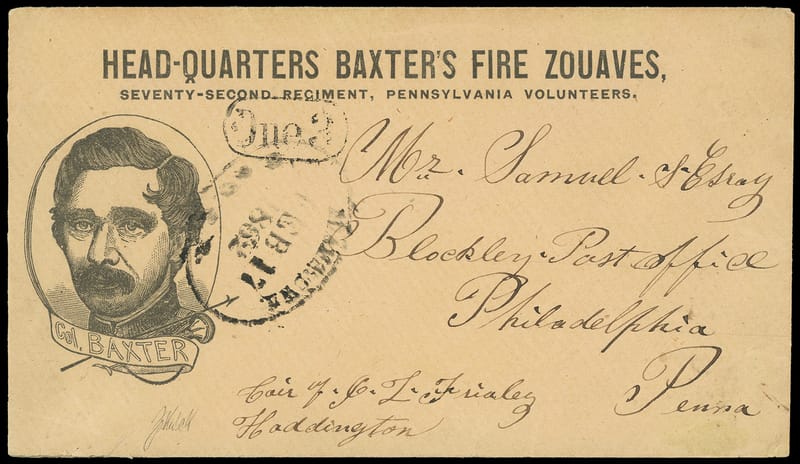 HEAD-QUARTERS BAXTER'S FIRE ZOUAVES,
SEVENTY-SECOND REGIMENT, PENNSYLVANIA VOLUNTEERS.
Due 3
FEB
17
1862
Mr. Samuel S Esray
Blockley Post office
Philadelphia
Penna
Col. BAXTER
Cair of
Haddington